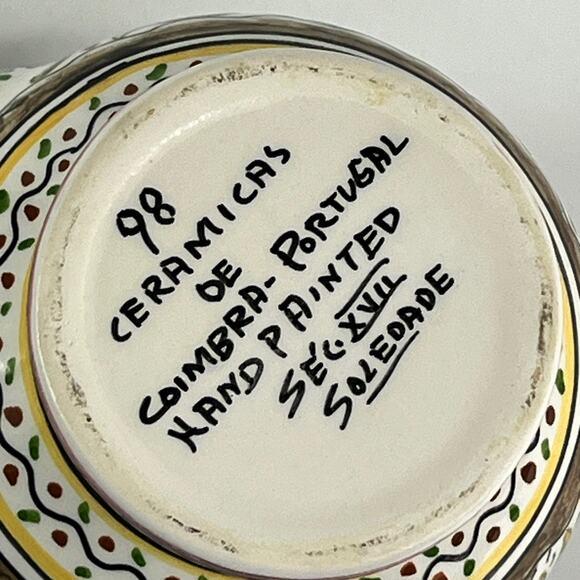 98
CERAMICAS
DE
COIMBRA - PORTUGAL
HAND PAINTED
SÉC. XVII
SOLEDADE